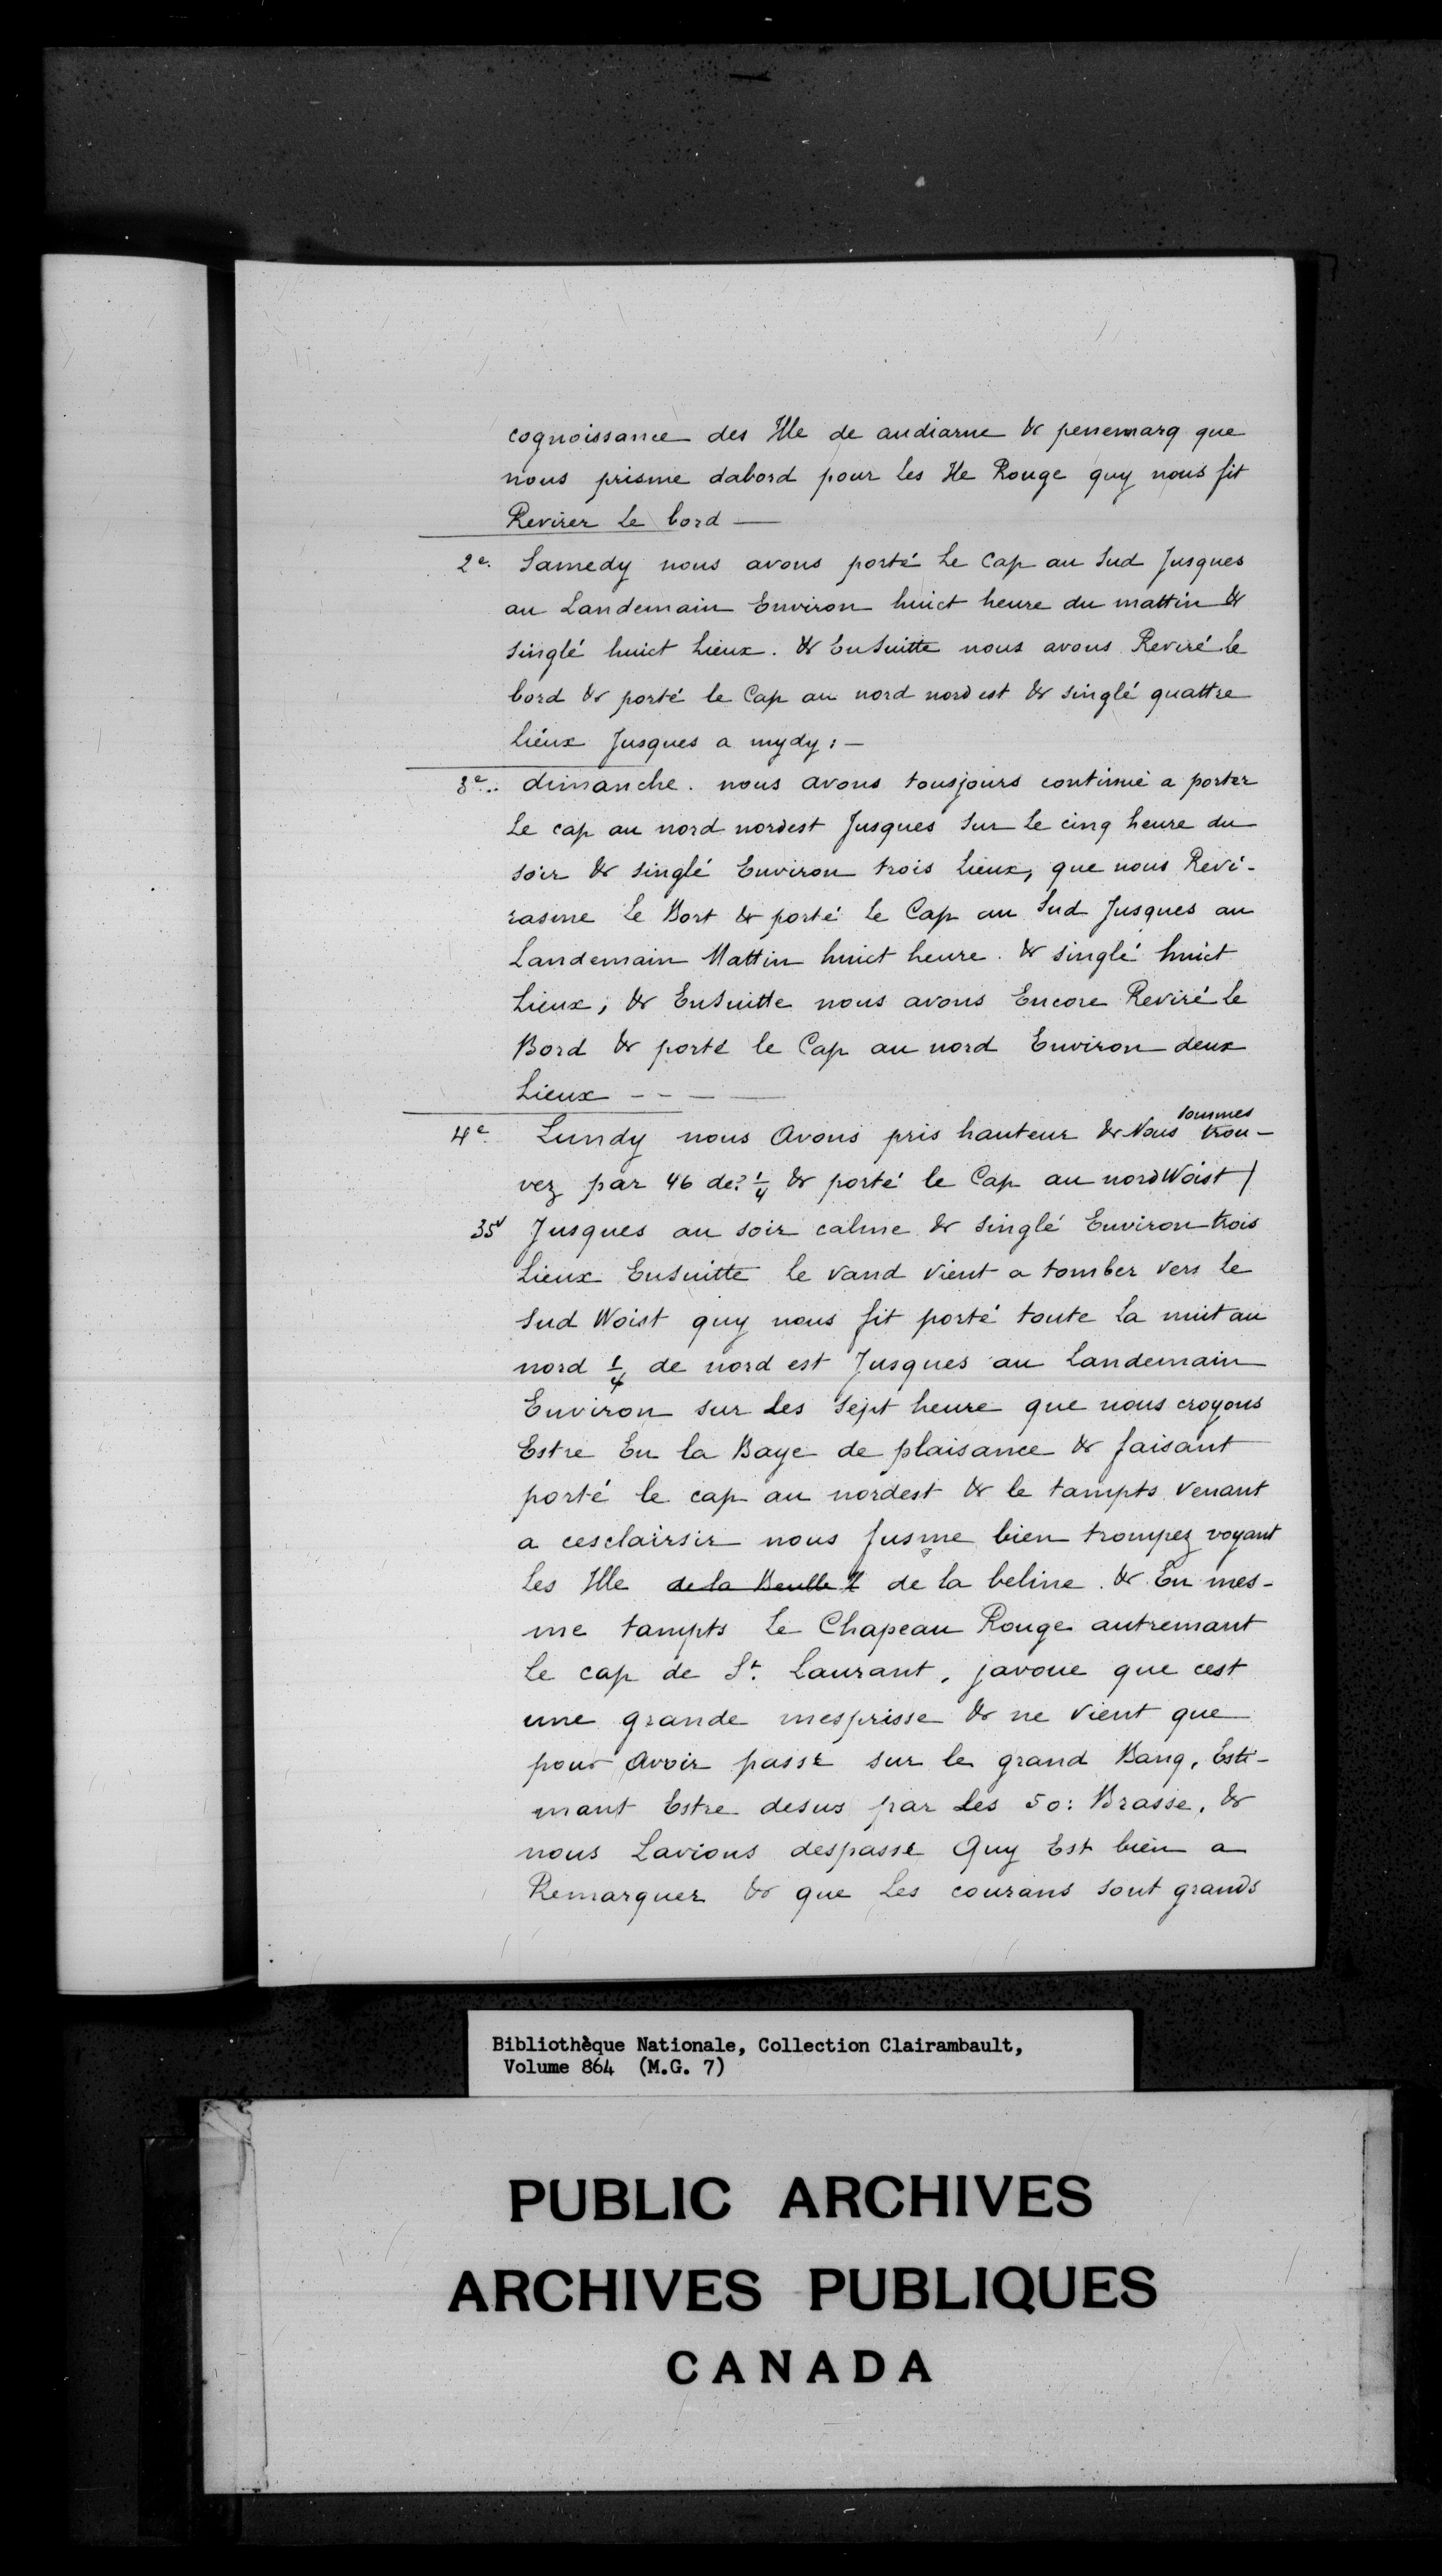 cognoissance des Ille de audiarne & penemarq que
nous prisme dabord pour Les Ile Rouge quy nous fit
Revirer Le bord —
2e. Samedy nous avons porté Le Cap au Sud Jusques
au Landemain Environ huict heure du mattin &
singlé huict Lieux. & Ensuitte nous avons Reviré le
bord & porté le Cap au nord nord est & singlé quattre
liéux Jusques a mydy : —
3e.. dimanche. nous avons tousjours continué a porter
Le cap au nord nordest Jusques sur Le cinq heure du
soir & singlé Environ trois Lieux, que nous Revi-
rasme Le Bort & porté Le Cap au Sud Jusques au
Landemain Mattin huict heure. & singlé huict
Lieux, & Ensuitte nous avons Encore Reviré Le
Bord & porté le Cap au nord Environ deux
Lieux - - — —
sommes
4e. Lundy nous Avons pris hauteur & Nous trou-
vez par 46 de? 1/4 & porté le Cap au nord Woist /
35v Jusques au soir calme & singlé Environ trois
Lieux Ensuitte le vand vient a tomber vers le
Sud Woist quy nous fit porté toute La nuit au
nord 1/4 de nord est Jusques au Landemain
Environ sur Les sept heure que nous croyons
Estre En la Baye de plaisance & faisant
porté le cap au nordest & le tampts venant
a cesclairsir nous fusme bien trompez voyant
Les Ille de la Beulle & de la beline. & En mes-
me tampts Le Chapeau Rouge autremant
le cap de St. Laurant, javoue que cest
une grande mesprisse & ne vient que
pour avoir passé sur le grand Banq, Esti-
mant Estre desus par Les 50: Brasse, &
nous Lavions despassé Quy Est bien a
Remarquer & que Les courans sont grands
Bibliothèque Nationale, Collection Clairambault,
Volume 864 (M.G. 7)
PUBLIC ARCHIVES
ARCHIVES PUBLIQUES
CANADA